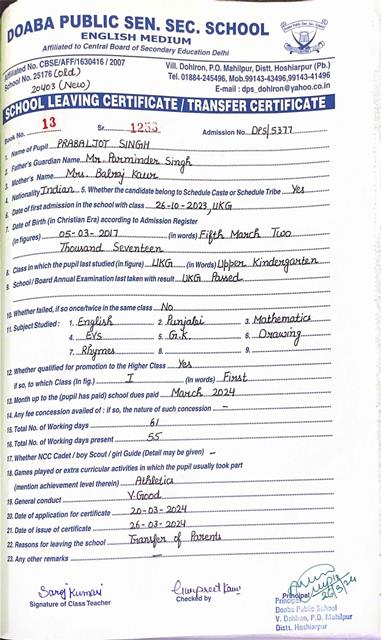 DOABA PUBLIC SEN. SEC. SCHOOL
ENGLISH MEDIUM
Affiliated to Central Board of Secondary Education Delhi
Affiliated No. CBSE/AFF/1630416 / 2007
School No. 25176 (old)
20403 (New)
Vill. Dohlron, P.O. Mahilpur, Distt. Hoshiarpur (Pb.)
Tel. 01884-245496, Mob.99143-43496,99143-41496
E-mail : dps_dohlron@yahoo.co.in
SCHOOL LEAVING CERTIFICATE / TRANSFER CERTIFICATE
Book No. 13 Sr. 1253 Admission No. DPS/5377
1. Name of Pupil PRABALJOT SINGH
2. Father's Guardian Name Mr. Parminder Singh
3. Mother's Name Mrs. Balraj Kaur
4. Nationality Indian 5. Whether the candidate belong to Schedule Caste or Schedule Tribe Yes
6. Date of first admission in the school with class 26-10-2023, UKG
7. Date of Birth (in Christian Era) according to Admission Register
(in figures) 05-03-2017 (in words) Fifth March Two
Thousand Seventeen
8. Class in which the pupil last studied (in figure) UKG (in Words) Upper Kindergarten
9. School / Board Annual Examination last taken with result UKG Passed
10. Whether failed, if so once/twice in the same class No
11. Subject Studied : 1. English 2. Punjabi 3. Mathematics
4. EVS 5. G.K. 6. Drawing
7. Rhymes 8. 9.
12. Whether qualified for promotion to the Higher Class Yes
if so, to which Class (in fig.) I (in words) First
13. Month up to the (pupil has paid) school dues paid March 2024
14. Any fee concession availed of : if so, the nature of such concession –
15. Total No. of Working days 61
16. Total No. of Working days present 55
17. Whether NCC Cadet / boy Scout / girl Guide (Detail may be given) –
18. Games played or extra curricular activities in which the pupil usually took part
(mention achievement level therein) Athletics
19. General conduct V.Good
20. Date of application for certificate 20-03-2024
21. Date of issue of certificate 26-03-2024
22. Reasons for leaving the school Transfer of Parents
23. Any other remarks –
Saroj Kumari
Signature of Class Teacher
Gurpreet Kaur
Checked by
26/3/24
Principal
Principal
Doaba Public School
V. Dohlron, P.O. Mahilpur
Distt. Hoshiarpur